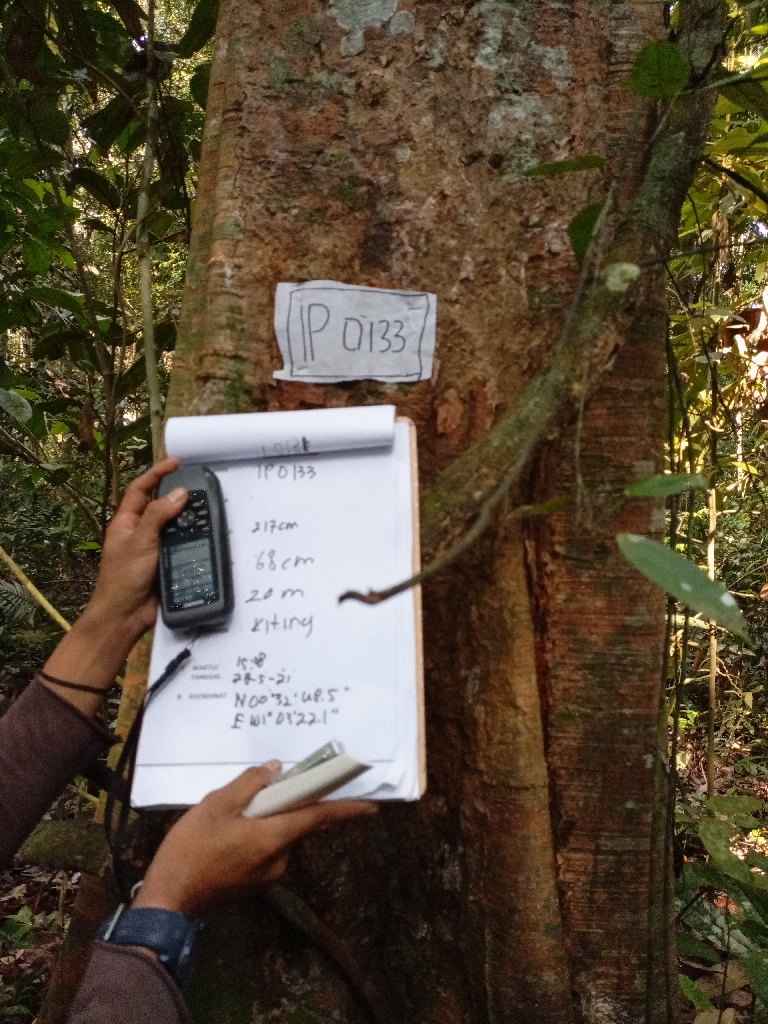 IP 0133
IP 0133
217cm
68cm
20 m
Kitiny
WAKTU 15:18
TANGGAL 28-5-21
KOORDINAT N00°32'48.5"
E 101°03'22.1"